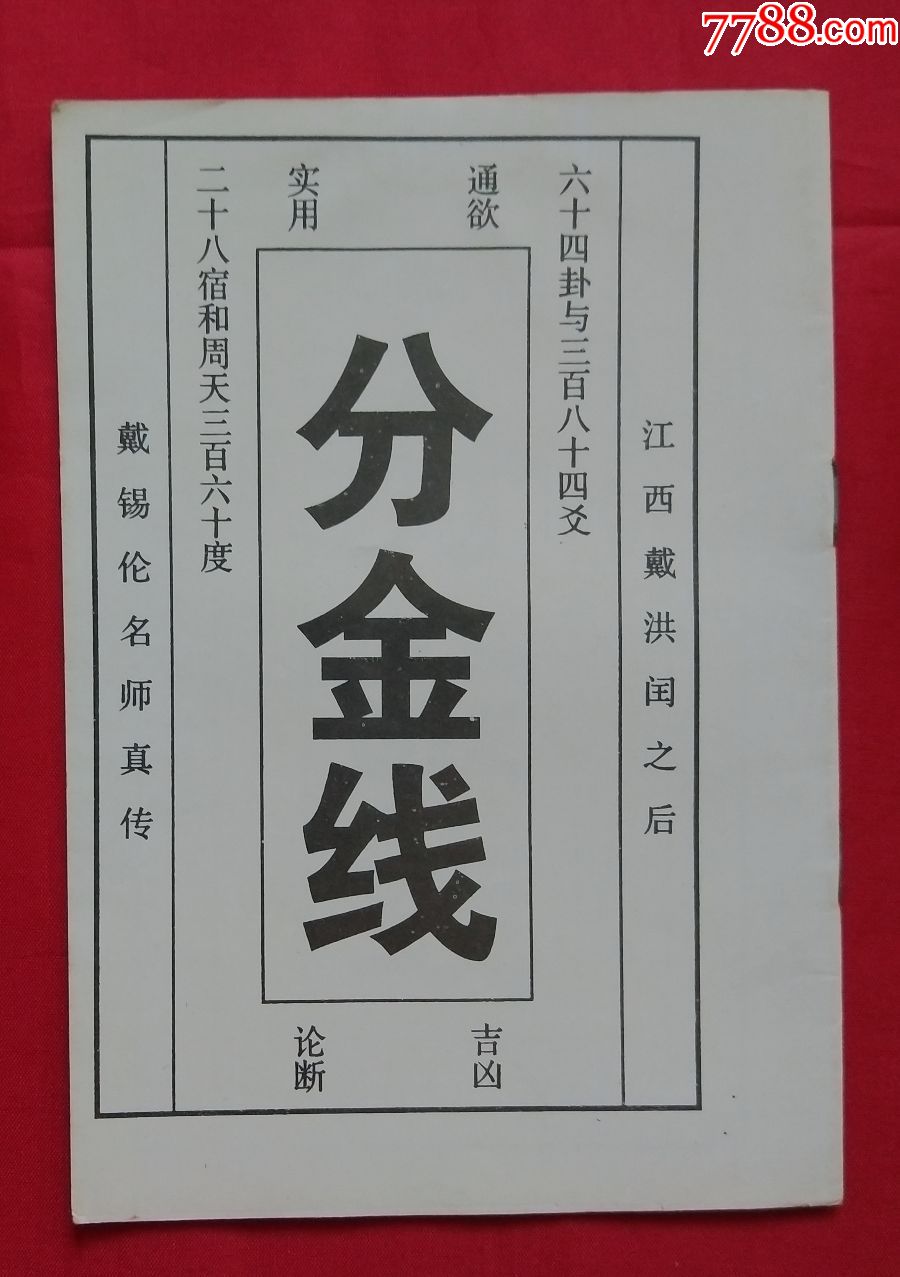 7788.com
江西戴洪闰之后
六十四卦与三百八十四爻
通欲
实用
分金线
吉凶
论断
二十八宿和周天三百六十度
戴锡伦名师真传